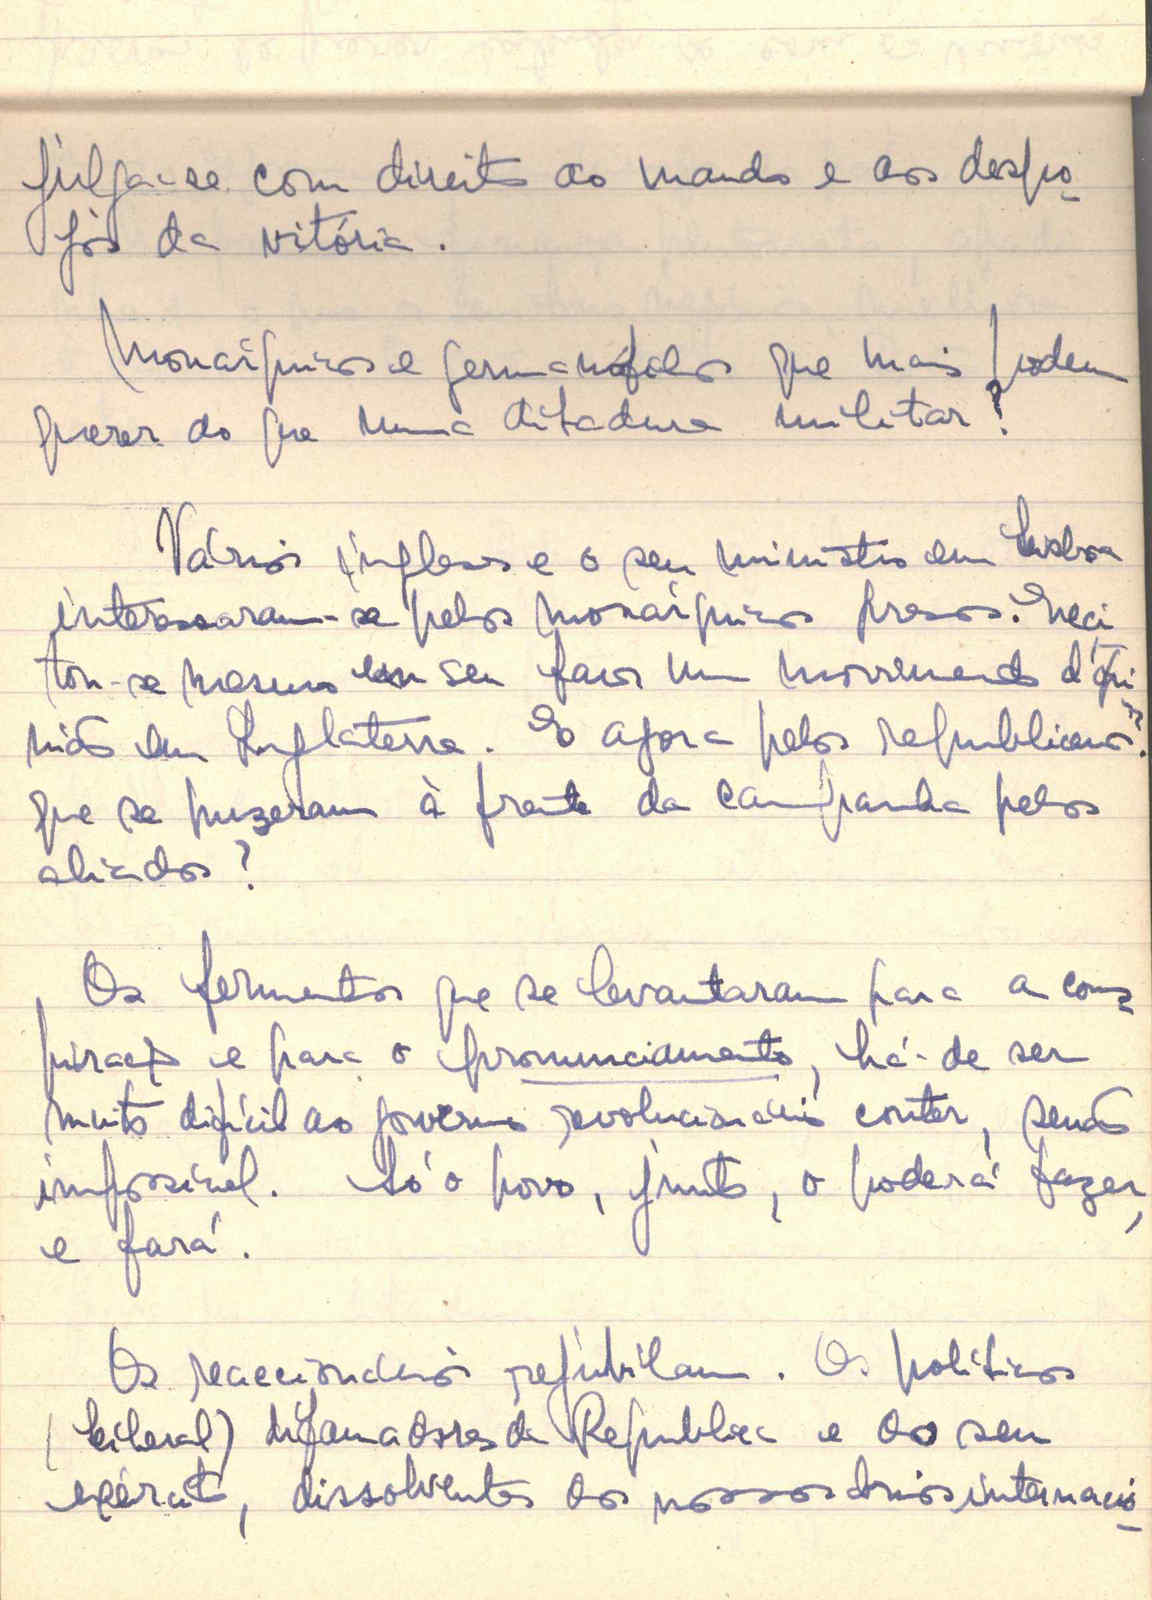 julga-se com direito ao mando e aos despo-
jos da vitória.
Monárquicos e germanófilos que mais podem
querer do que uma ditadura militar?
Vários ingleses e o seu ministro em Lisboa
interessaram-se pelos monárquicos presos. Exci
tou-se mesmo em seu favor um movimento d'opi-
nião em Inglaterra. E agora pelos republicanos?
que se puzeram à frente da campanha pelos
aliados?
Os fermentos que se levantaram para a cons-
piração e para o pronunciamento, há-de ser
muito difícil ao governo revolucionário conter, senão
impossível. Só o povo, junto, o poderá fazer,
e fará.
Os reaccionários rejubilam. Os políticos
( ) difamadores da República e do seu
exército, dissolventes dos nossos internacio-